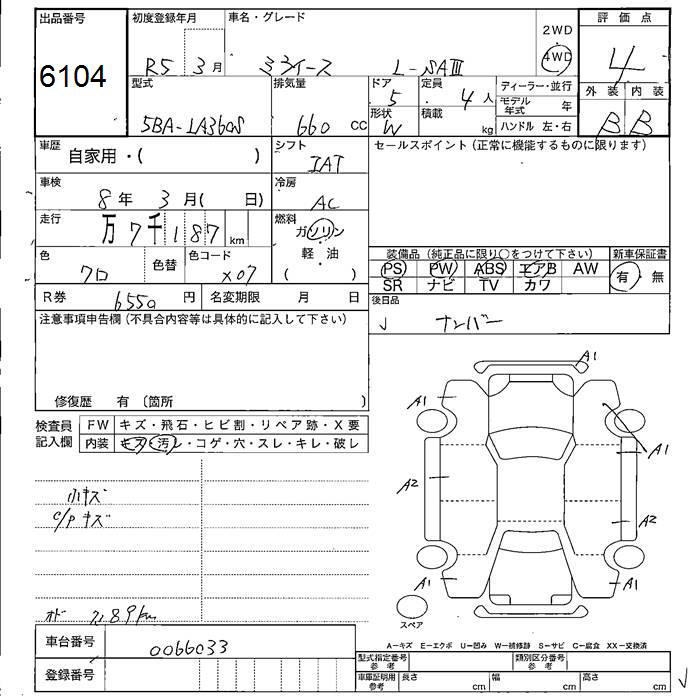 出品番号 初度登録年月 車名・グレード 評価点
6104 R5 3月 ミライース L-SAⅢ 2WD 4WD 4
型式 排気量 ドア 定員 ディーラー・並行 外装 内装
5 4人 モデル年式 年
5BA-LA360S 660 CC 形状 W 積載 kg ハンドル 左・右 B B
車歴 自家用・( ) シフト IAT セールスポイント (正常に機能するものに限ります)
車検 8年 3月( 日) 冷房 AC
走行 万7千187km 燃料 ガソリン・軽・油 ( )
色 クロ 色替 色コード X07 装備品 (純正品に限り○をつけて下さい) 新車保証書
PS PW ABS エアB AW 有・無
SR ナビ TV カワ
R券 6550円 名変期限 月 日 後日品
ナンバー
注意事項申告欄(不具合内容等は具体的に記入して下さい)
修復歴 有 〔箇所 〕
検査員記入欄 FW キズ・飛石・ヒビ割・リペア跡・X要
内装 キズ・汚レ・コゲ・穴・スレ・キレ・破レ
A1
A1 A1
A1
A2
A2
A1 A1
小キズ
C/Pキズ
スペア
オド 7189km
車台番号 0066033
A-キズ E-エクボ U-凹み W-補修跡 S-サビ C-腐食 XX-交換済
登録番号
型式指定番号 参考 類別区分番号 参考
車庫証明用 参考 長さ cm 幅 cm 高さ cm